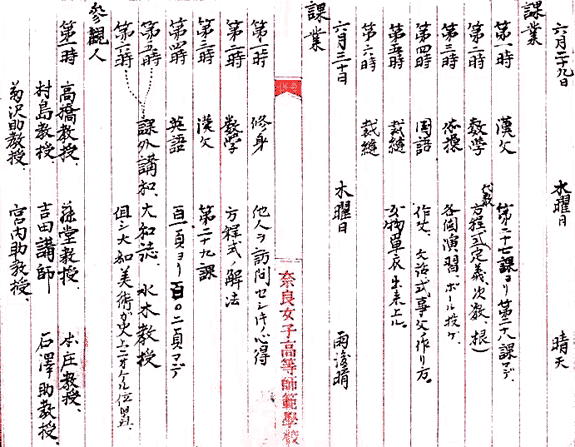 六月二十九日 水曜日 晴天
課業
第一時 漢文 第二十七課ヨリ第二十八課マデ、
第二時 数学 代数 方程式(定義、次数、根)
第三時 体操 各個演習、ボール投ゲ、
第四時 国語 作文、文法式事文ノ作リ方。
第五時 裁縫
第六時 裁縫 単衣出来上ル。
六月三十日 水曜日 雨後晴
課業
奈良女子高等師範學校
第一時 修身 他人ヲ訪問セシトキノ心得
第二時 数学 方程式ノ解法
第三時 漢文 第二十九課
第四時 英語 百一頁ヨリ百〇二頁マデ
第五時 課外講和、大和誌、水木教授
第六時 但シ大和美術ガ史上ニオケル位置、
参観人
第一時 高橋教授、藤堂教授 本庄教授、
村島教授、吉田講師 石澤助教授、
菊沢助教授、宮内助教授、